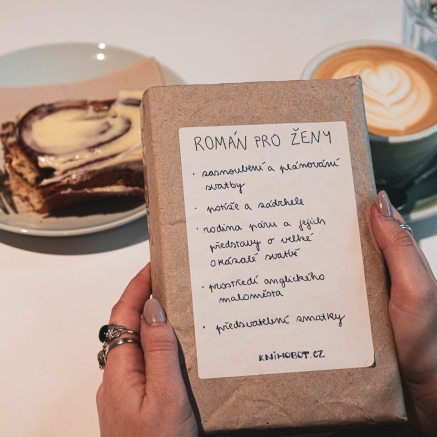 ROMÁN PRO ŽENY
· zasnoubení a plánování
svatby
· potíže a zádrhele
· rodina páru a jejich
představy o velké
okázalé svatbě
· prostředí anglického
maloměsta
· předsvatební zmatky
KNIHOBOT.CZ